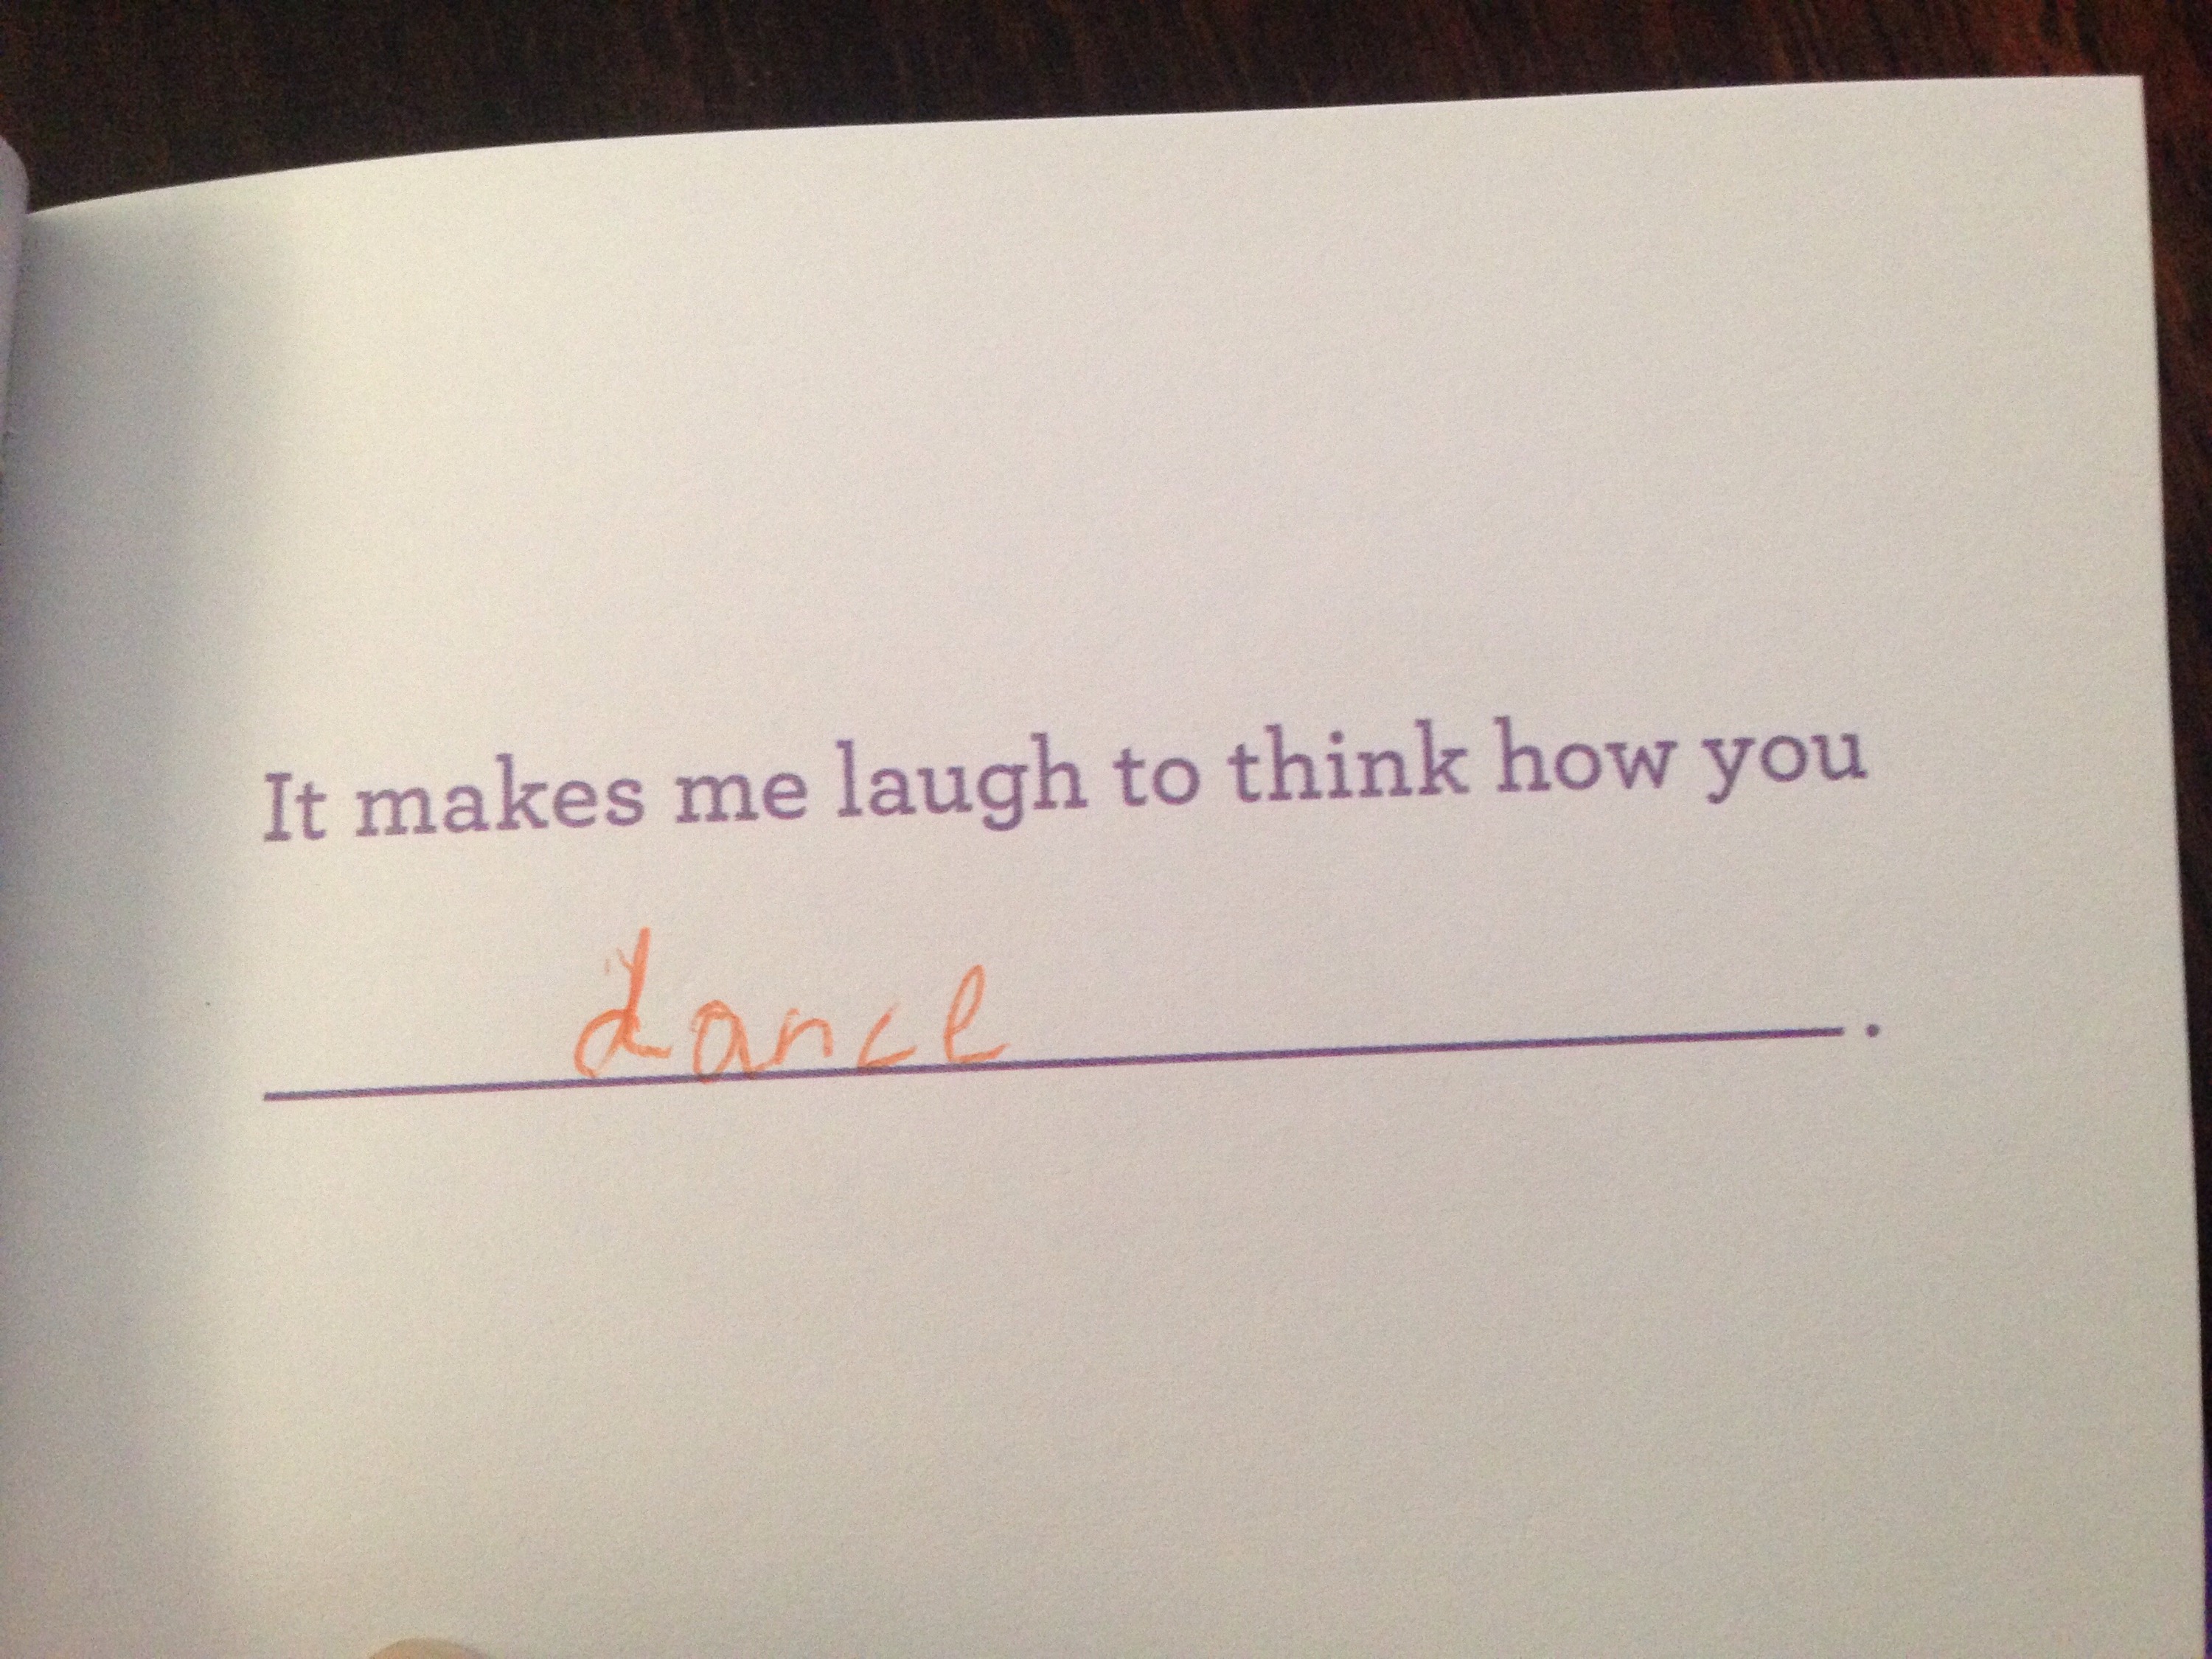 It makes me laugh to think how you
dance.